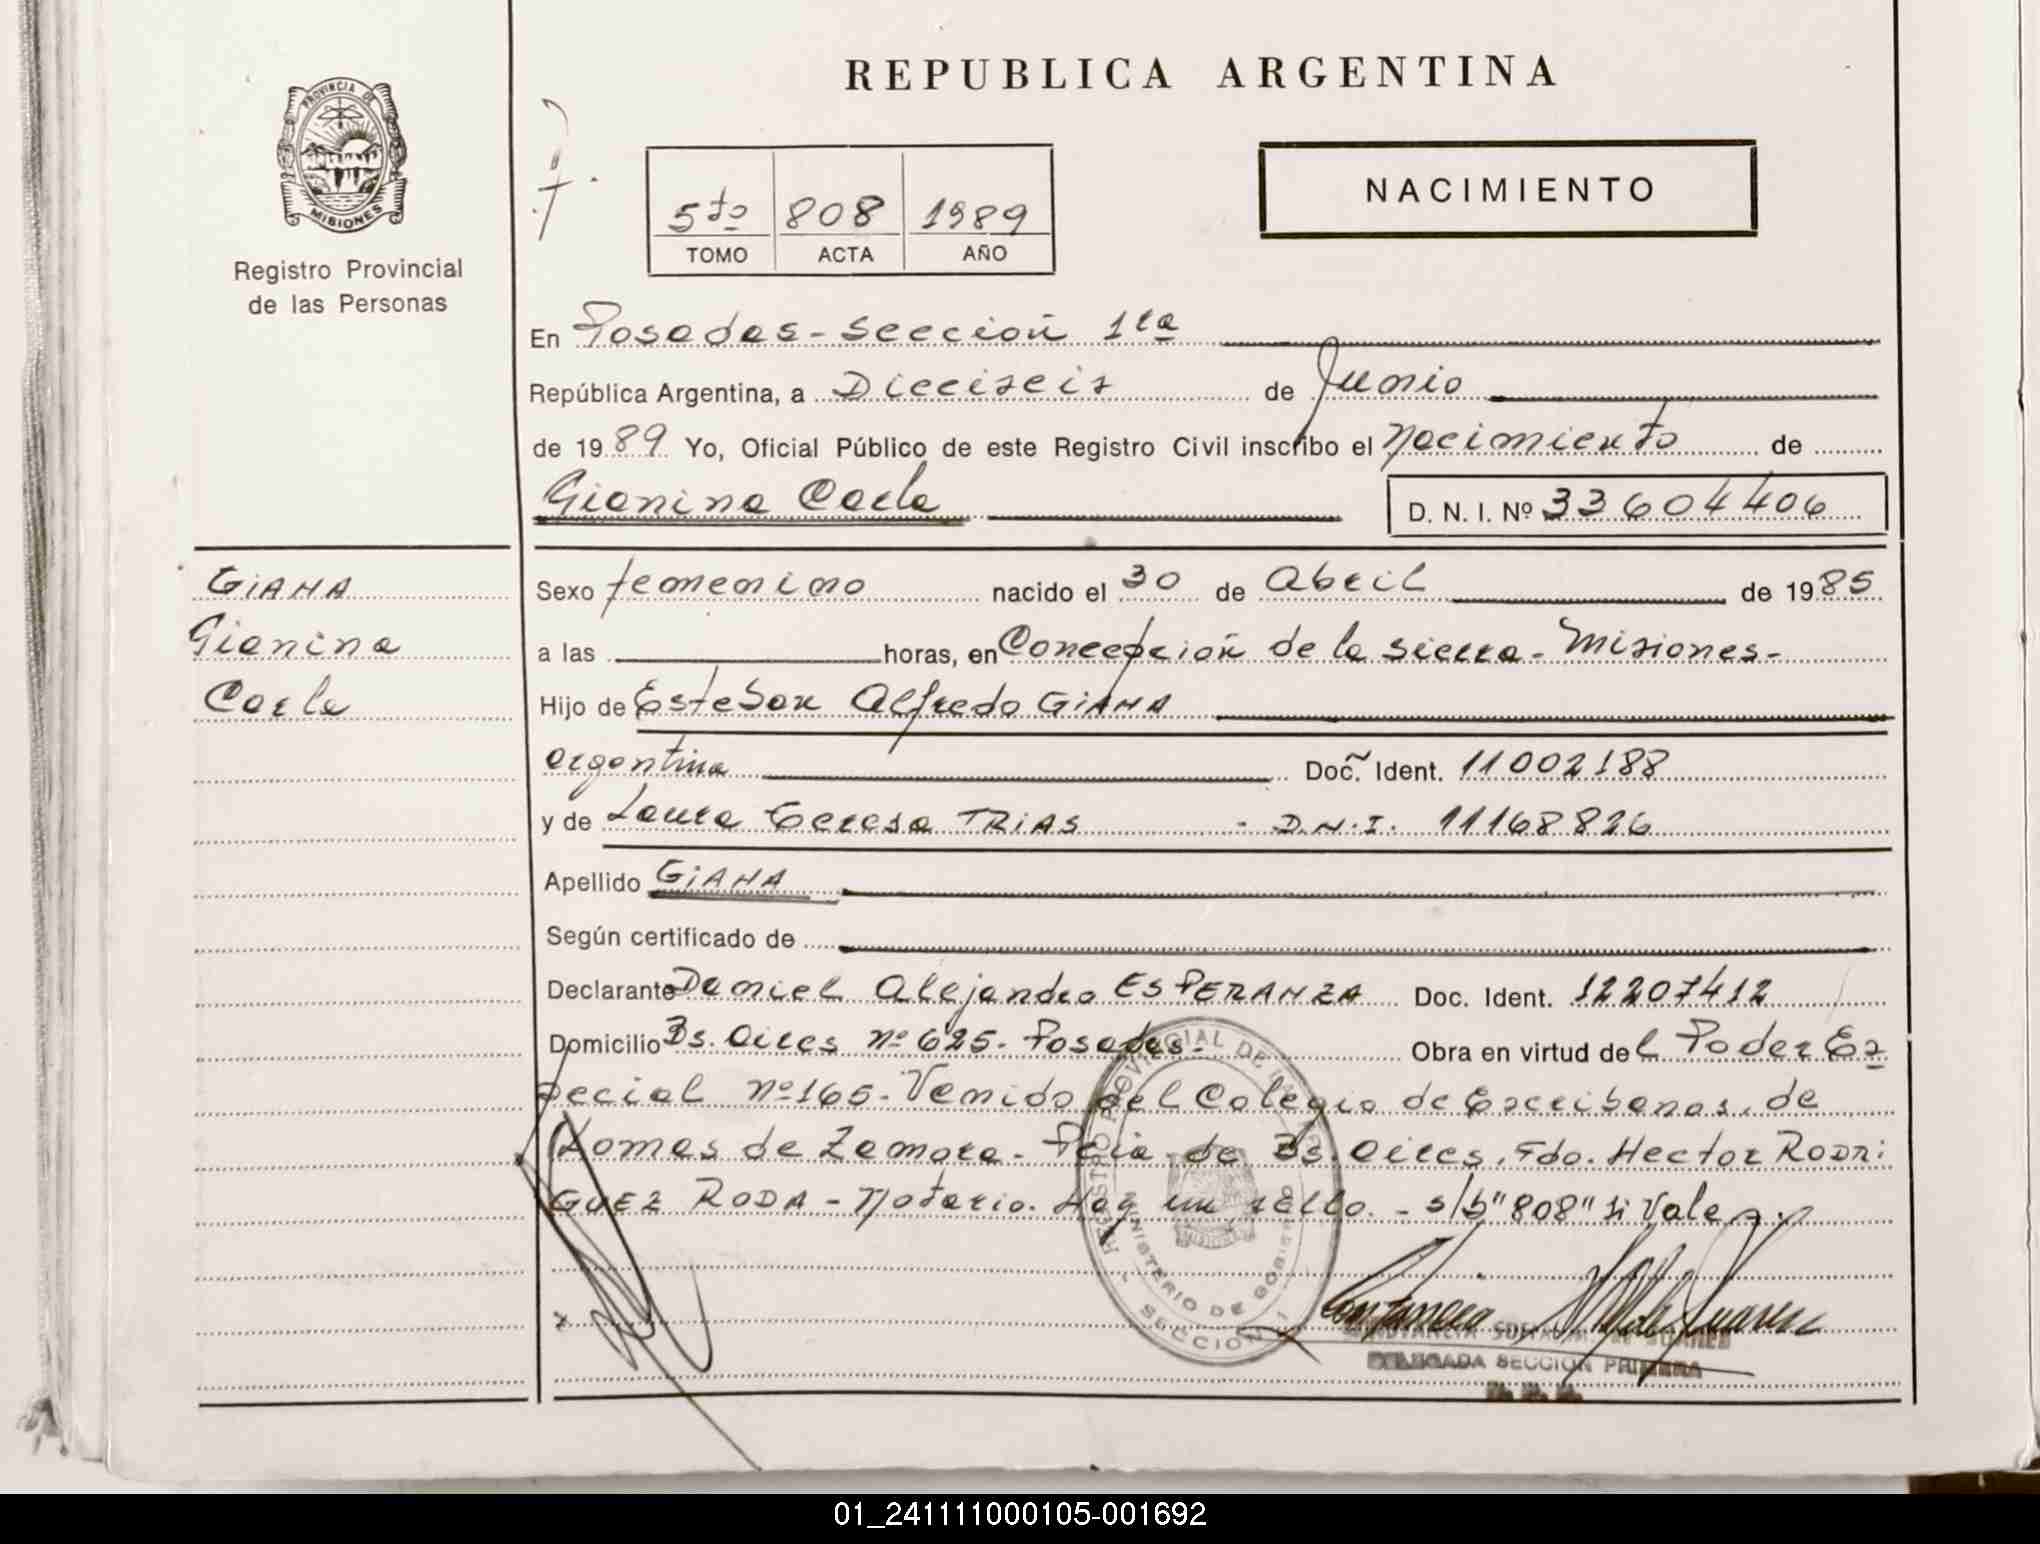 REPUBLICA ARGENTINA
PROVINCIA DE
MISIONES
Registro Provincial
de las Personas
5to 808 1989
TOMO ACTA AÑO
NACIMIENTO
En Posadas - Sección 1ra
República Argentina, a Dieciseis de Junio
de 1989 Yo, Oficial Público de este Registro Civil inscribo el Nacimiento de
Gianina Carla D. N. I. Nº 33604406
GiANA
Gianina
Carla
Sexo femenino nacido el 30 de Abril de 1985
a las horas, en Concepción de la Sierra - Misiones -
Hijo de Esteban Alfredo GiANA
argentina Doc. Ident. 11002188
y de Laura Teresa TRiAS - D.N.I. 11168826
Apellido GiANA
Según certificado de
Declarante Daniel Alejandro ESPERANZA Doc. Ident. 12207412
Domicilio Bs. Aires nº 625 - Posadas - Obra en virtud del Poder Es
pecial nº 165 - Venido del Colegio de Escribanos, de
Lomas de Zamora - Pcia de Bs. Aires, Fdo. Hector RODRI
GUEZ RODA - Notario. Hay un sello. - s/b "808" si Vale -.
REGISTRO PROVINCIAL DE LAS
MINISTERIO DE GOBIERNO
SECCION 1
DELEGADA SECCION PRIMERA
01_241111000105-001692